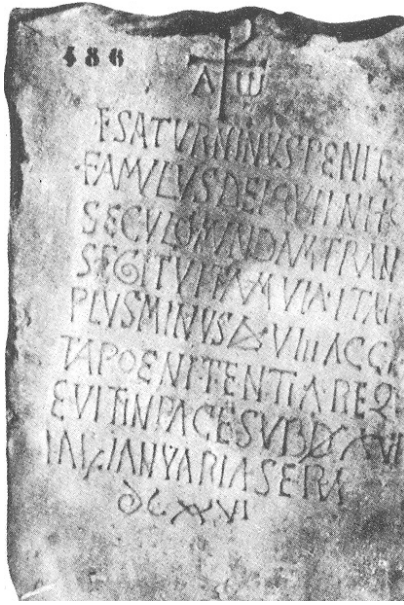 486
A ω
SATVRNINVS PENIT
FAMVLVS DEI QVI IN
SECVLO MVNDAM TRAN
SEGIT VITAM
PLVS MINVS VIIII ACCE
TA POENITENTIA REQ
EVIT IN PACE SVB D XVI
KAL IANVARIAS ERA
DCXXVI